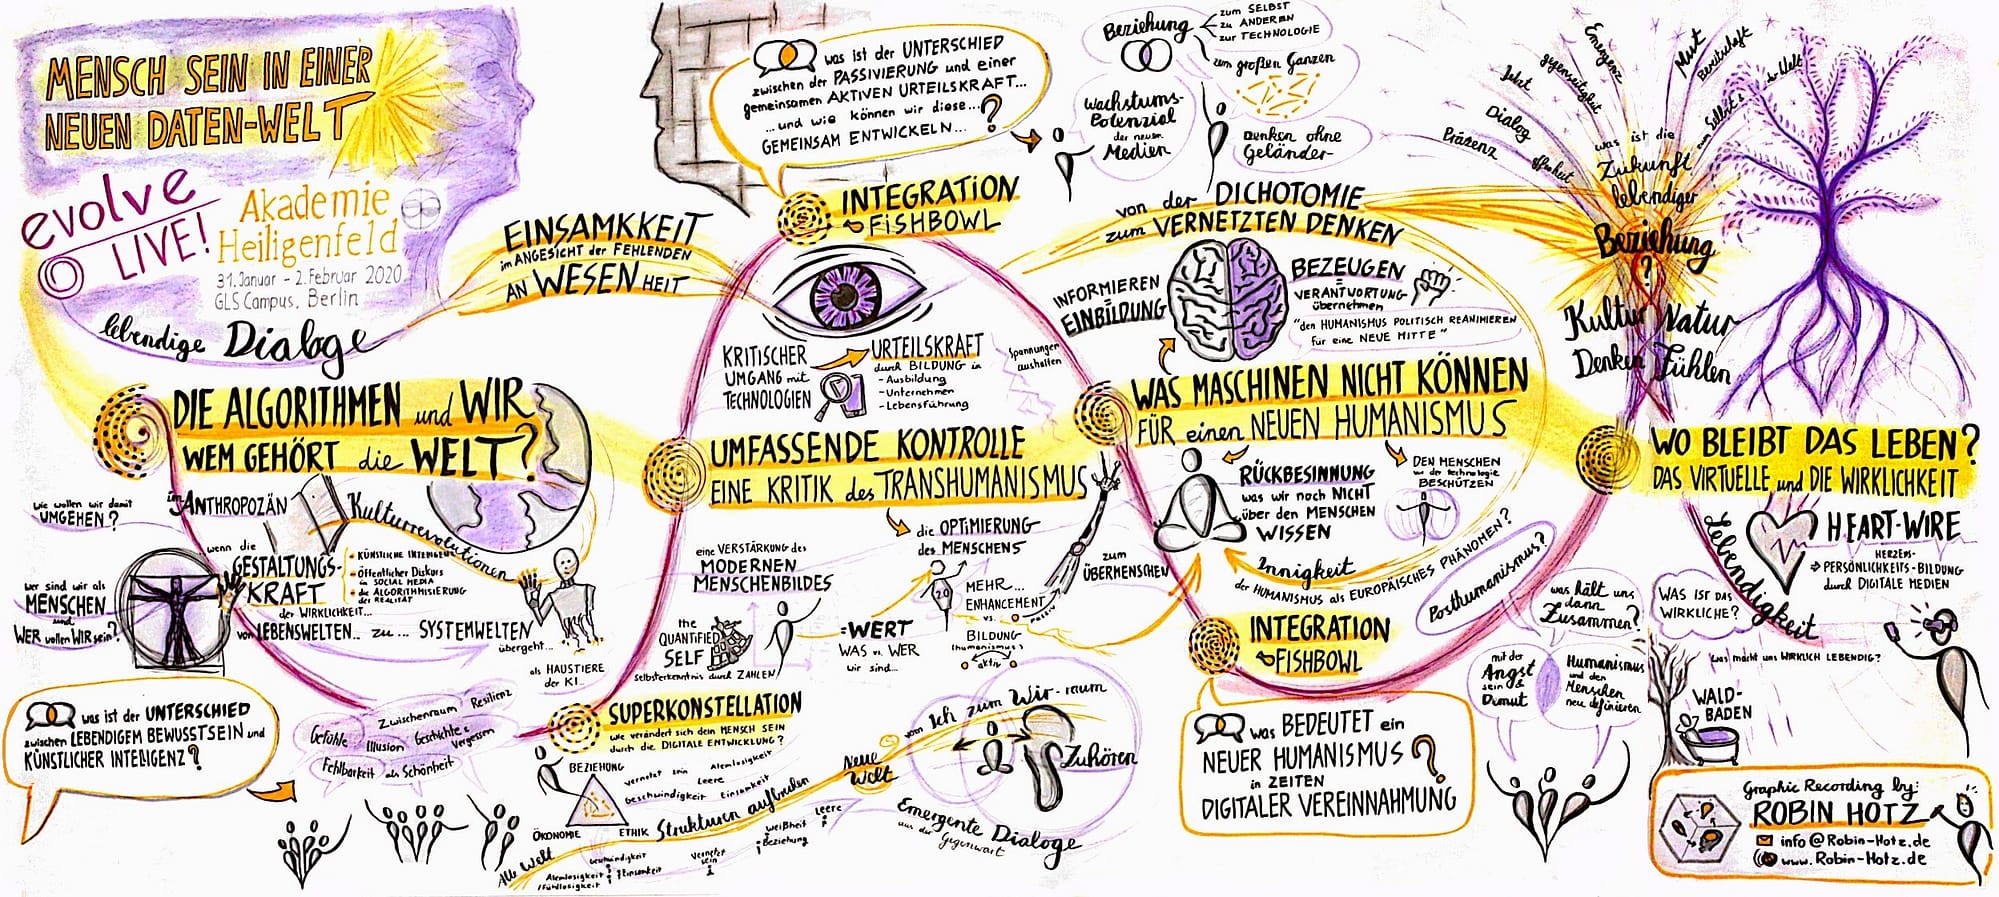 MENSCH SEIN IN EINER
NEUEN DATEN-WELT
evolve
LIVE!
Akademie
Heiligenfeld
31. Januar - 2. Februar 2020
GLS Campus, Berlin
lebendige Dialoge
EINSAMKKEIT
im ANGESICHT der FEHLENDEN
AN WESEN HEIT
DIE ALGORITHMEN und WIR
WEM GEHÖRT die WELT?
wie wollen wir damit
UMGEHEN?
im ANTHROPOZÄN
Kulturrevolutionen
wenn die
GESTALTUNGS-
KRAFT
der WIRKLICHKEIT...
- KÜNSTLICHE INTELIGENZ
- Öffentlicher Diskurs
in SOCIAL MEDIA
- die ALGORITHMISIERUNG
der REALITÄT
von LEBENSWELTEN.. zu ... SYSTEMWELTEN
übergeht...
wer sind wir als
MENSCHEN
und
WER wollen WIR sein?
als HAUSTIERE
der KI...
was ist der UNTERSCHIED
zwischen LEBENDIGEM BEWUSSTSEIN und
KÜNSTLICHER INTELIGENZ?
Gefühle
Zwischenraum
Resilienz
Illusion
Geschichte &
Vergessen
Fehlbarkeit als Schönheit
SUPERKONSTELLATION
wie verändert sich dein MENSCH SEIN
durch die DIGITALE ENTWICKLUNG?
BEZIEHUNG
ÖKONOMIE
ETHIK
vernetzt sein
Atemlosigkeit
Leere
Geschwindigkeit
Einsamkeit
Strukturen aufbrechen
Alte Welt
Neue
Welt
Geschwindigkeit
Atemlosigkeit
/Fühllosigkeit
Einsamkeit
Vernetzt
sein
Weißheit
Beziehung
Leere
vom Ich zum Wir-raum
Zuhören
Emergente Dialoge
aus der Gegenwart
UMFASSENDE KONTROLLE
EINE KRITIK des TRANSHUMANISMUS
eine VERSTÄRKUNG des
MODERNEN
MENSCHENBILDES
the
QUANTIFIED
SELF
Selbsterkenntnis durch ZAHLEN
=WERT
WAS vs. WER
wir sind...
die OPTIMIERUNG
des MENSCHENS
2.0
MEHR...
ENHANCEMENT
passiv
vs.
BILDUNG
(humanismus)
aktiv
zum
ÜBERMENSCHEN
KRITISCHER
UMGANG mit
TECHNOLOGIEN
URTEILSKRAFT
durch BILDUNG in
- Ausbildung
- Unternehmen
- Lebensführung
Spannungen
aushalten
INTEGRATION
FISHBOWL
was ist der UNTERSCHIED
zwischen der PASSIVIERUNG und einer
gemeinsamen AKTIVEN URTEILSKRAFT...
...und wie können wir diese...
GEMEINSAM ENTWICKELN...?
Beziehung
zum SELBST
zu ANDEREN
zur TECHNOLOGIE
zum großen Ganzen
Wachstums-
Potenzial
der neuen
Medien
Denken ohne
Geländer
von der DICHOTOMIE
zum VERNETZTEN DENKEN
INFORMIEREN
=
EINBILDUNG
BEZEUGEN
=
VERANTWORTUNG
übernehmen
"den HUMANISMUS POLITISCH REANIMIEREN
für eine NEUE MITTE"
WAS MASCHINEN NICHT KÖNNEN
FÜR einen NEUEN HUMANISMUS
RÜCKBESINNUNG
was wir noch NICHT
über den MENSCHEN
WISSEN
DEN MENSCHEN
in der technologie
BESCHÜTZEN
Innigkeit
der HUMANISMUS als EUROPÄISCHES PHÄNOMEN?
Posthumanismus?
INTEGRATION
FISHBOWL
was BEDEUTET ein
NEUER HUMANISMUS?
in ZEITEN
DIGITALER VEREINNAHMUNG
was hält uns
dann
Zusammen?
mit der
Angst
sein &
Demut
Humanismus
und den
Menschen
neu definieren
Präsenz
Dialog
Jetzt
offenheit
gegenseitigkeit
Emergenz
Mut
Bereitschaft
zum Selbst &
der Welt
was ist die
Zukunft
lebendiger
Beziehung
?
Kultur Natur
Denken Fühlen
WO BLEIBT DAS LEBEN?
DAS VIRTUELLE und DIE WIRKLICHKEIT
Lebendigkeit
HEART-WIRE
HERZENS-
PERSÖNLICHKEITS-BILDUNG
durch DIGITALE MEDIEN
WAS IST DAS
WIRKLICHE?
was macht uns WIRKLICH LEBENDIG?
WALD-
BADEN
Graphic Recording by:
ROBIN HOTZ
info@Robin-Hotz.de
www.Robin-Hotz.de